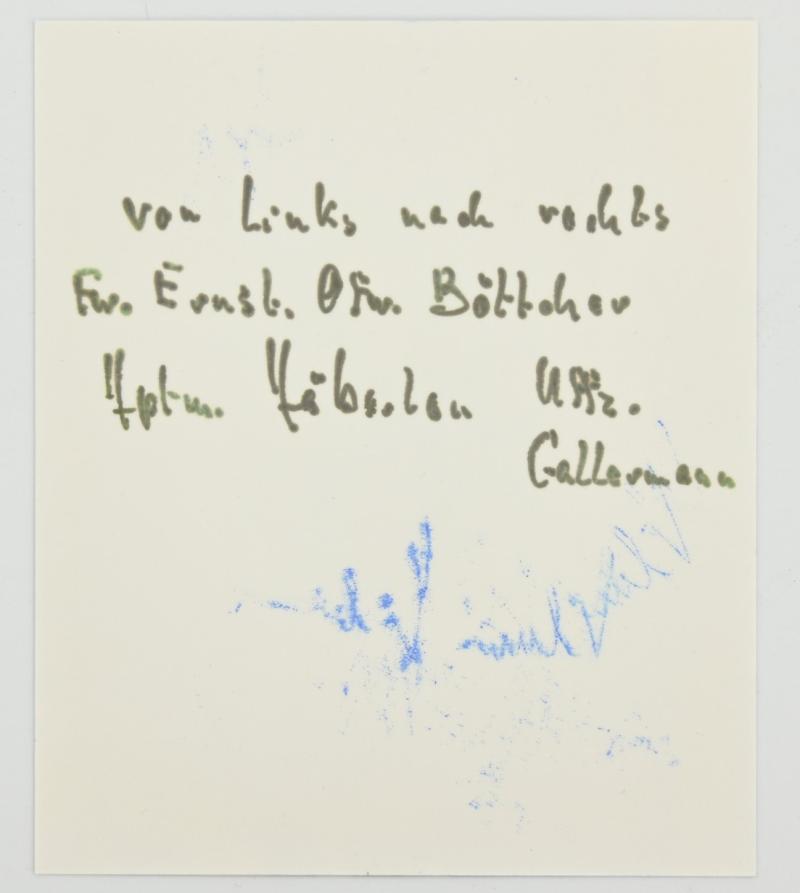 von Links nach rechts
Fw. Ernst. Ofw. Böttcher
Hptm. Häberlen Uffz.
Gallermann